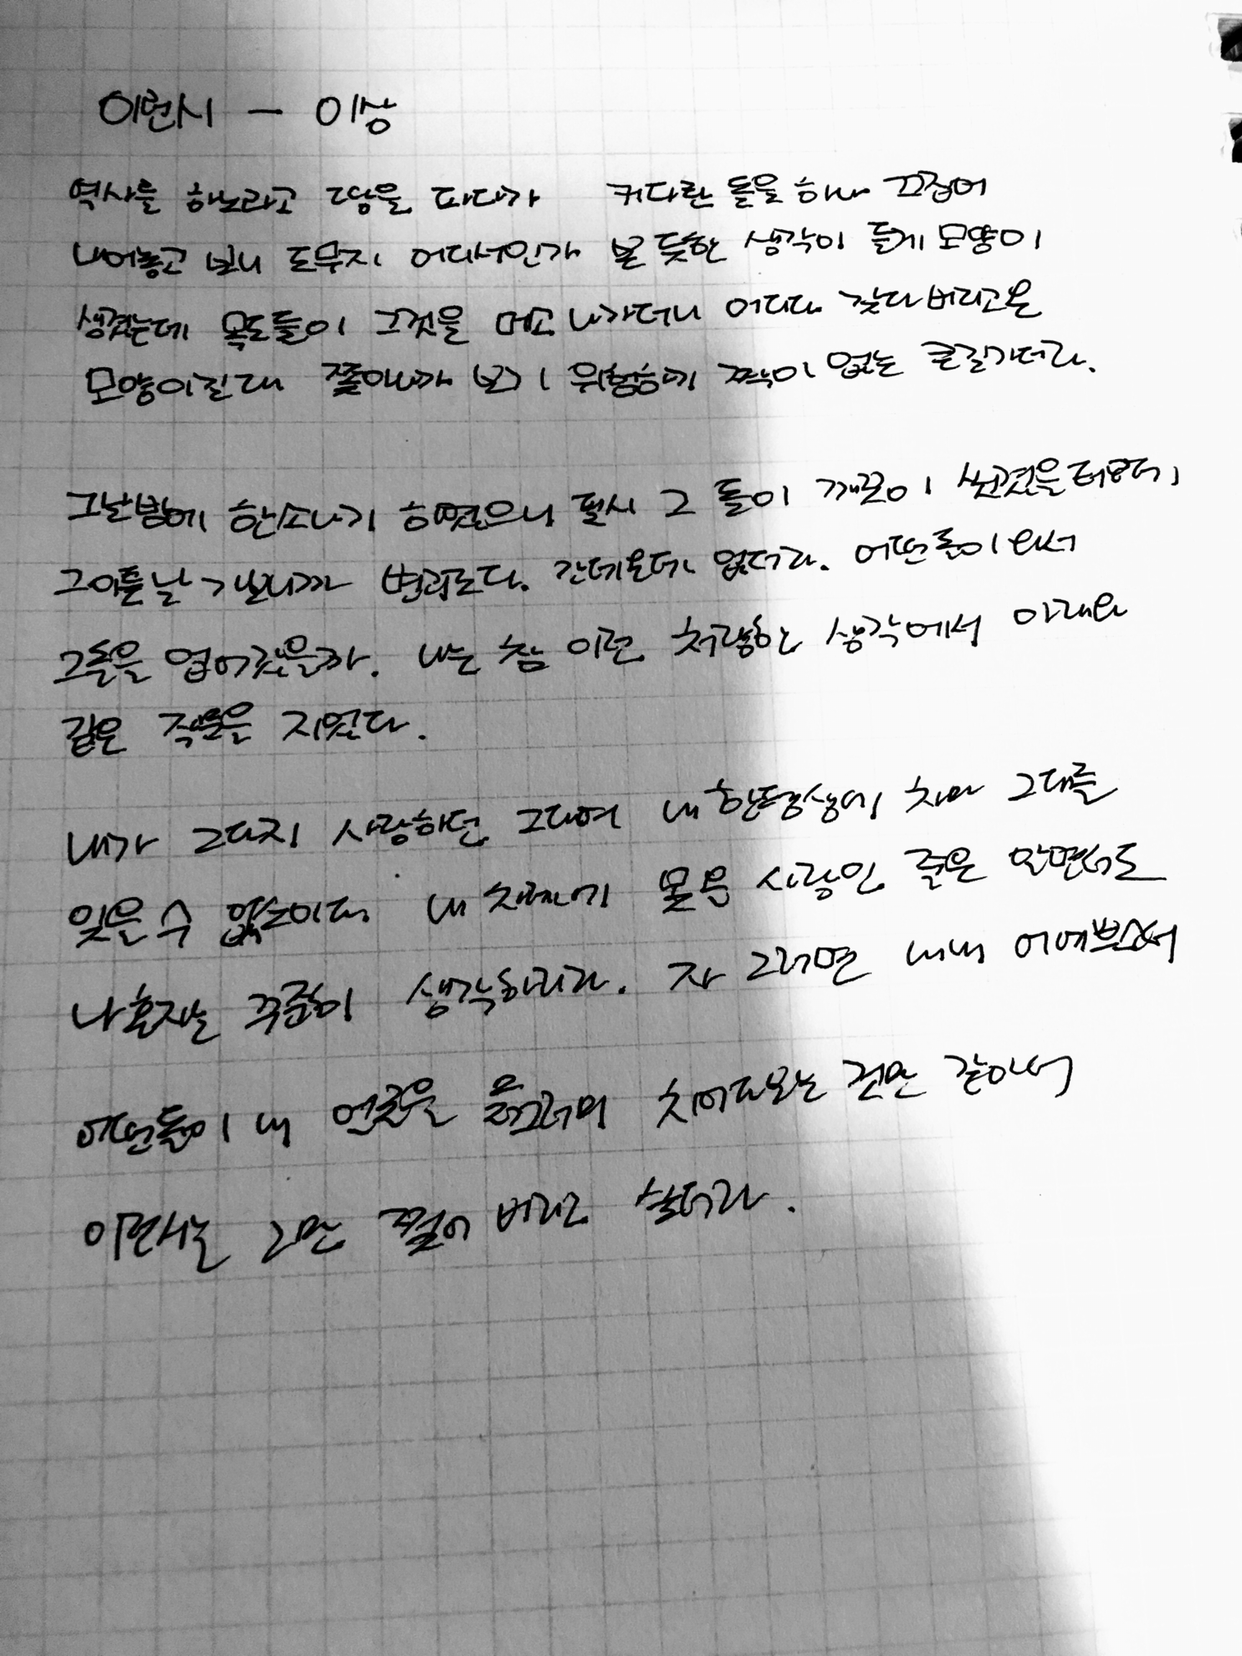 이런시 - 이상
역사를 하노라고 땅을 파다가 커다란 돌을 하나 끄집어
내어놓고 보니 도무지 어디서인가 본 듯한 생각이 들게 모양이
생겼는데 목도들이 그것을 메고 나가더니 어디다 갖다 버리고온
모양이길래 쫓아나가 보니 위험하기 짝이 없는 큰길가더라.
그날밤에 한소나기 하였으니 필시 그 돌이 깨끗이 씻겼을터인데
그이튿날 가보니까 변괴로다. 간데온데 없더라. 어떤돌이 와서
그돌을 업어갔을까. 나는 참 이런 처량한 생각에서 아래와
같은 작문을 지었다.
내가 그다지 사랑하던 그대여 내 한평생에 차마 그대를
잊을 수 없소이다. 내 차례에 못올 사랑인 줄은 알면서도
나혼자는 꾸준히 생각하리라. 자 그러면 내내 어여쁘소서
어떤돌이 내 얼굴을 물끄러미 치어다보는 것만 같아서
이런시는 그만 찢어 버리고 싶더라.